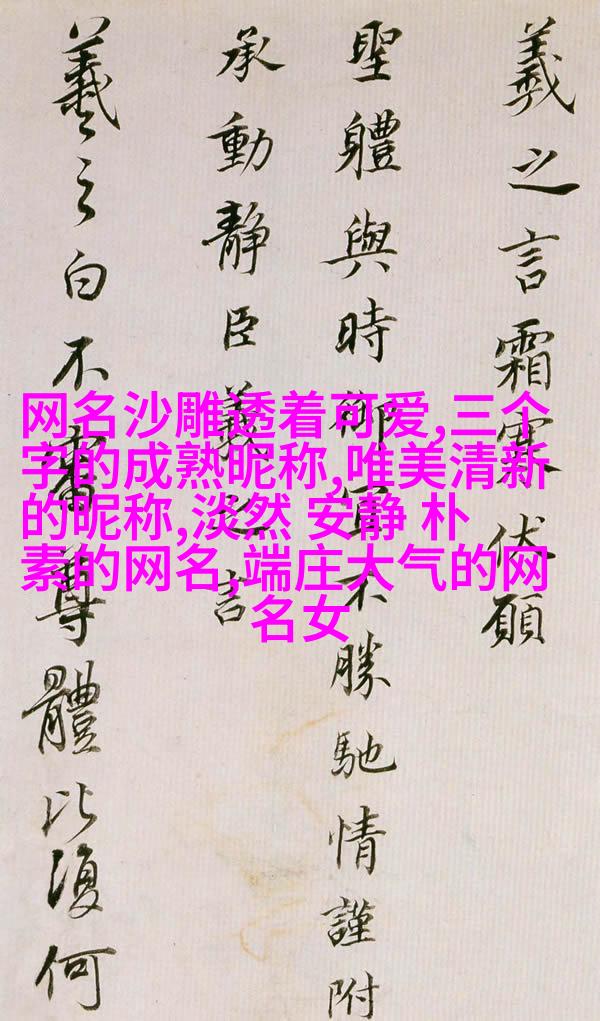 義之言霜寒伏願
聖體與時御宜不勝馳情謹附
承動靜臣義之言
羲之白不審尊體比復何
网名沙雕透着可爱,三个
字的成熟昵称,唯美清新
的昵称,淡然 安静 朴
素的网名,端庄大气的网
名女